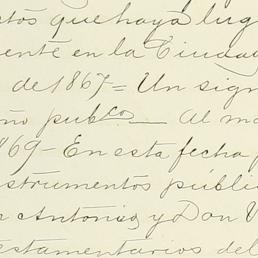 tos que haya lug
ente en la Ciudad
de 1867 = Un sign
ño pubco — Al ma
869 - En esta fecha p
strumentos públi
n Antonio, y Don V
estamentarios del